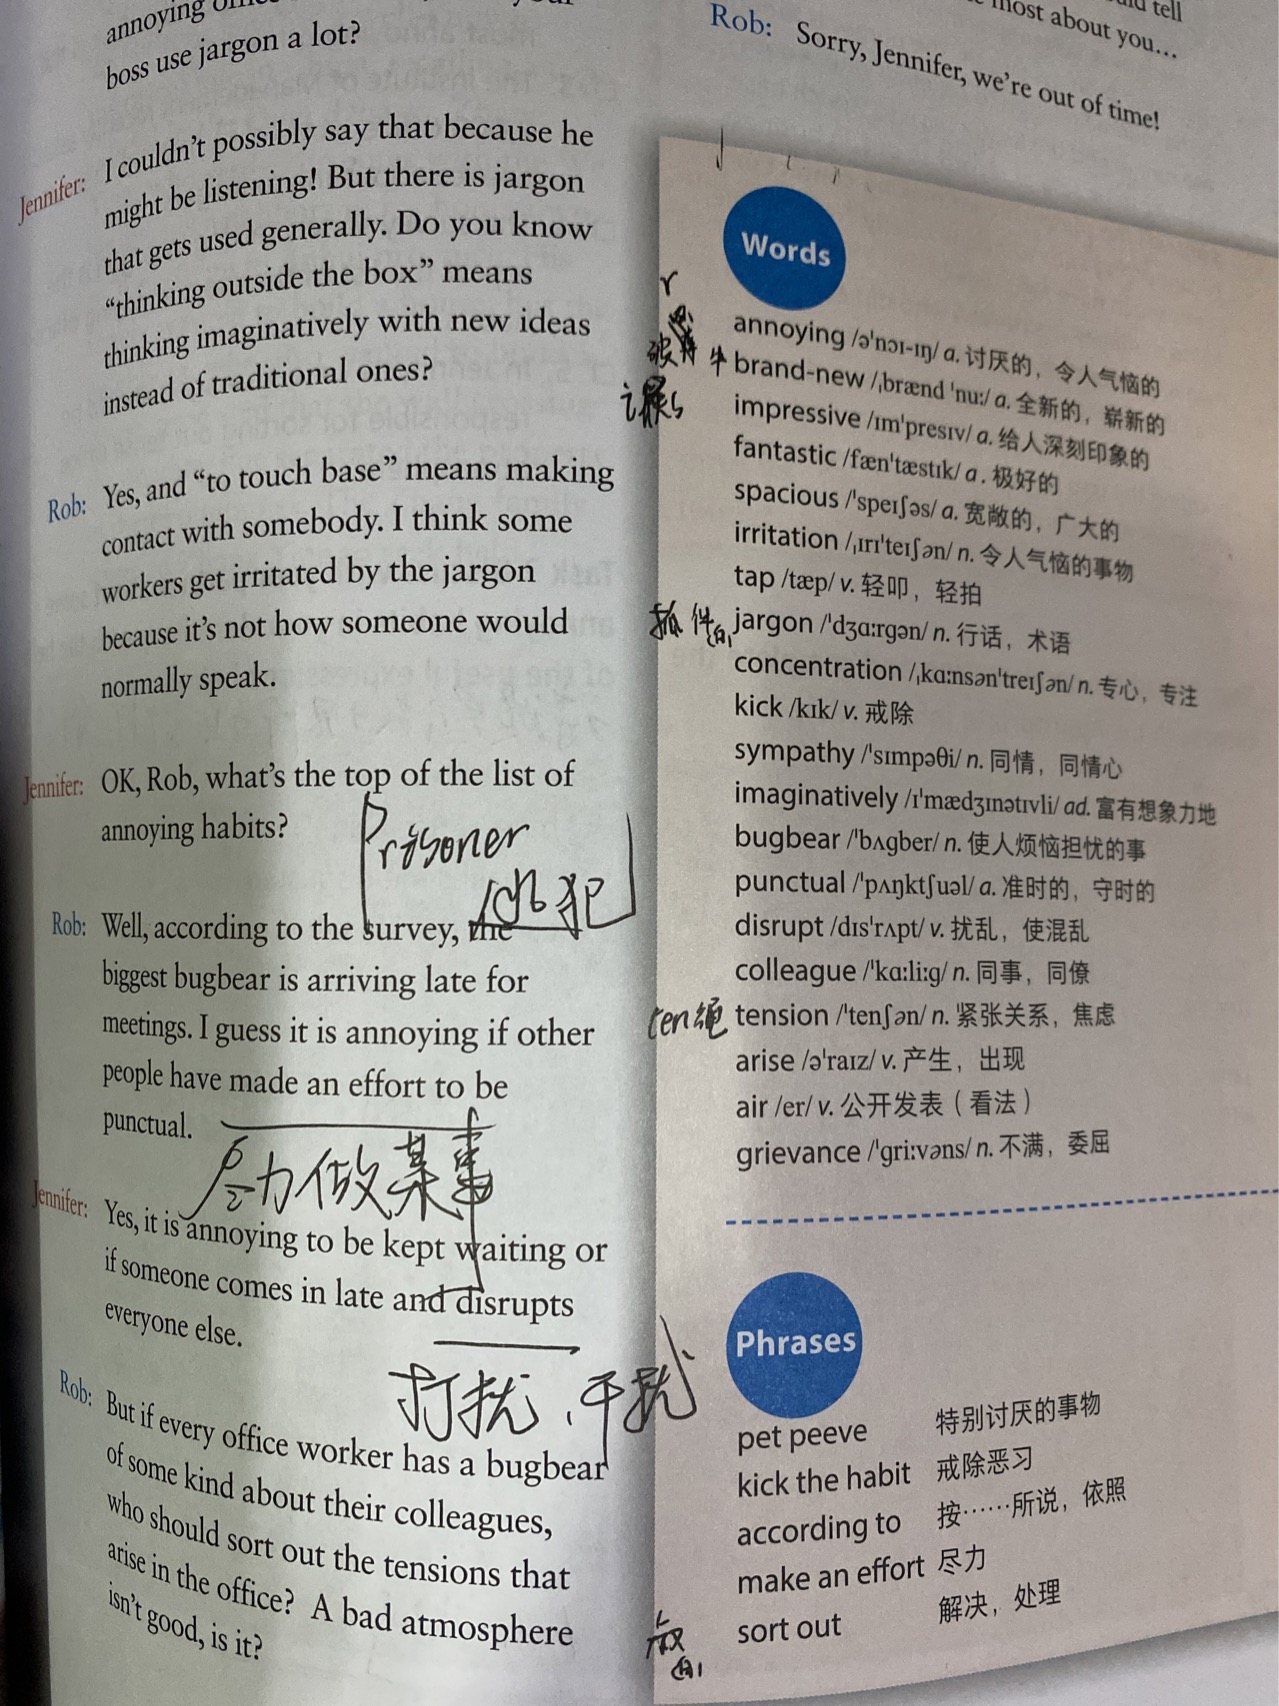 annoying
boss use jargon a lot?
Jennifer: I couldn't possibly say that because he
might be listening! But there is jargon
that gets used generally. Do you know
“thinking outside the box” means
thinking imaginatively with new ideas
instead of traditional ones?
Rob: Yes, and “to touch base” means making
contact with somebody. I think some
workers get irritated by the jargon
because it's not how someone would
normally speak.
Jennifer: OK, Rob, what's the top of the list of
annoying habits?
Prisoner
犯
Rob: Well, according to the survey, the
biggest bugbear is arriving late for
meetings. I guess it is annoying if other
people have made an effort to be
punctual.
尽力做某事
Jennifer: Yes, it is annoying to be kept waiting or
if someone comes in late and disrupts
everyone else.
打扰、干扰
Rob: But if every office worker has a bugbear
of some kind about their colleagues,
who should sort out the tensions that
arise in the office? A bad atmosphere
isn't good, is it?
tell
most about you…
Rob: Sorry, Jennifer, we're out of time!
Words
annoying /ə'nɔɪ-ɪŋ/ a. 讨厌的，令人气恼的
brand-new /ˌbrænd 'nu:/ a. 全新的，崭新的
impressive /ɪm'presɪv/ a. 给人深刻印象的
fantastic /fæn'tæstɪk/ a. 极好的
spacious /'speɪʃəs/ a. 宽敞的，广大的
irritation /ˌɪrɪ'teɪʃən/ n. 令人气恼的事物
tap /tæp/ v. 轻叩，轻拍
jargon /'dʒɑ:rgən/ n. 行话，术语
concentration /ˌkɑ:nsən'treɪʃən/ n. 专心，专注
kick /kɪk/ v. 戒除
sympathy /'sɪmpəθi/ n. 同情，同情心
imaginatively /ɪ'mædʒɪnətɪvli/ ad. 富有想象力地
bugbear /'bʌgber/ n. 使人烦恼担忧的事
punctual /'pʌŋktʃuəl/ a. 准时的，守时的
disrupt /dɪs'rʌpt/ v. 扰乱，使混乱
colleague /'kɑ:li:g/ n. 同事，同僚
ten绳
tension /'tenʃən/ n. 紧张关系，焦虑
arise /ə'raɪz/ v. 产生，出现
air /er/ v. 公开发表（看法）
grievance /'gri:vəns/ n. 不满，委屈
Phrases
pet peeve 特别讨厌的事物
kick the habit 戒除恶习
according to 按……所说，依照
make an effort 尽力
sort out 解决，处理